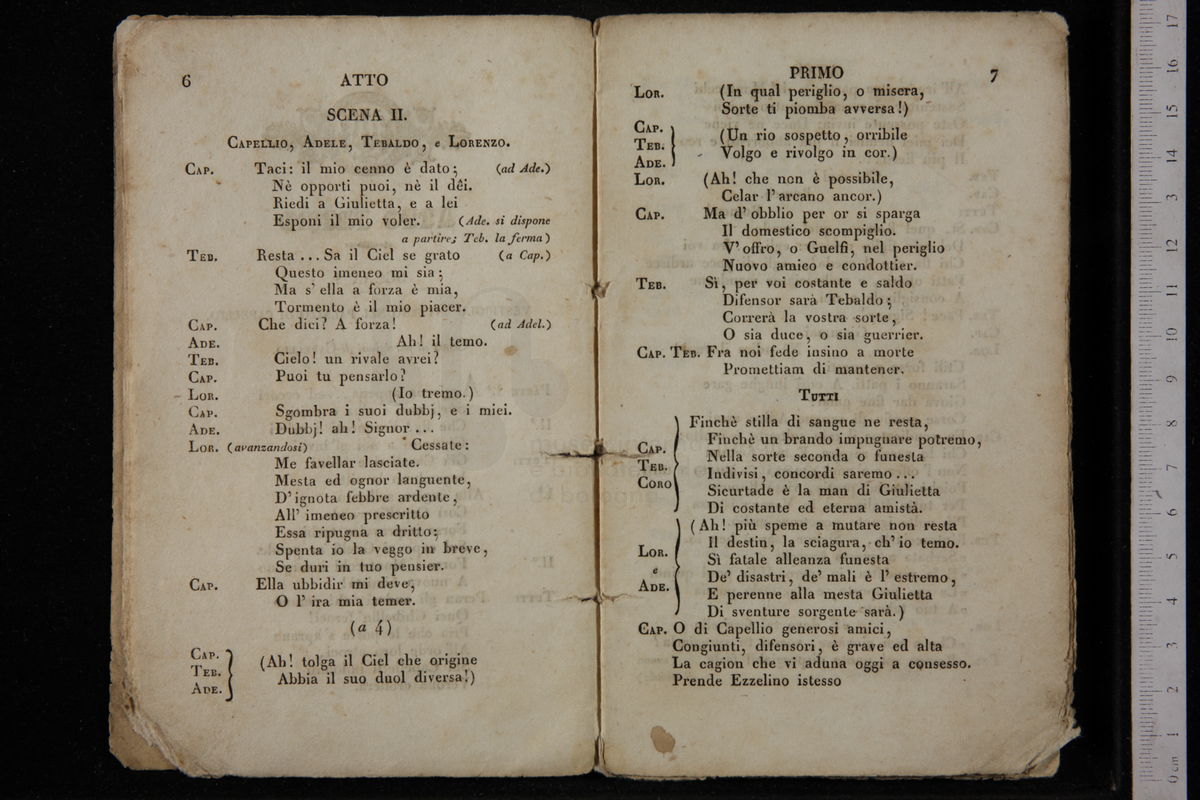 6
ATTO
SCENA II.
CAPELLIO, ADELE, TEBALDO, e LORENZO.
CAP. Taci: il mio cenno è dato; (ad Ade.)
Nè opporti puoi, nè il dêi.
Riedi a Giulietta, e a lei
Esponi il mio voler. (Ade. si dispone
a partire; Teb. la ferma)
TEB. Resta ... Sa il Ciel se grato (a Cap.)
Questo imeneo mi sia;
Ma s' ella a forza è mia,
Tormento è il mio piacer.
CAP. Che dici? A forza! (ad Adel.)
ADE. Ah! il temo.
TEB. Cielo! un rivale avrei?
CAP. Puoi tu pensarlo?
LOR. (Io tremo.)
CAP. Sgombra i suoi dubbj, e i miei.
ADE. Dubbj! ah! Signor ...
LOR. (avanzandosi) Cessate:
Me favellar lasciate.
Mesta ed ognor languente,
D' ignota febbre ardente,
All' imeneo prescritto
Essa ripugna a dritto;
Spenta io la veggo in breve,
Se duri in tuo pensier.
CAP. Ella ubbidir mi deve,
O l' ira mia temer.
(a 4)
CAP.
TEB.
ADE.
(Ah! tolga il Ciel che origine
Abbia il suo duol diversa!)
PRIMO
7
LOR. (In qual periglio, o misera,
Sorte ti piomba avversa!)
CAP.
TEB.
ADE.
(Un rio sospetto, orribile
Volgo e rivolgo in cor.)
LOR. (Ah! che non è possibile,
Celar l' arcano ancor.)
CAP. Ma d' obblio per or si sparga
Il domestico scompiglio.
V' offro, o Guelfi, nel periglio
Nuovo amico e condottier.
TEB. Sì, per voi costante e saldo
Difensor sarà Tebaldo;
Correrà la vostra sorte,
O sia duce, o sia guerrier.
CAP. TEB. Fra noi fede insino a morte
Promettiam di mantener.
TUTTI
CAP.
TEB.
CORO
Finchè stilla di sangue ne resta,
Finchè un brando impugnare potremo,
Nella sorte seconda o funesta
Indivisi, concordi saremo ...
Sicurtade è la man di Giulietta
Di costante ed eterna amistà.
LOR.
e
ADE.
(Ah! più speme a mutare non resta
Il destin, la sciagura, ch' io temo.
Sì fatale alleanza funesta
De' disastri, de' mali è l' estremo,
E perenne alla mesta Giulietta
Di sventure sorgente sarà.)
CAP. O di Capellio generosi amici,
Congiunti, difensori, è grave ed alta
La cagion che vi aduna oggi a consesso.
Prende Ezzelino istesso
0 cm 1 2 3 4 5 6 7 8 9 10 11 12 13 14 15 16 17